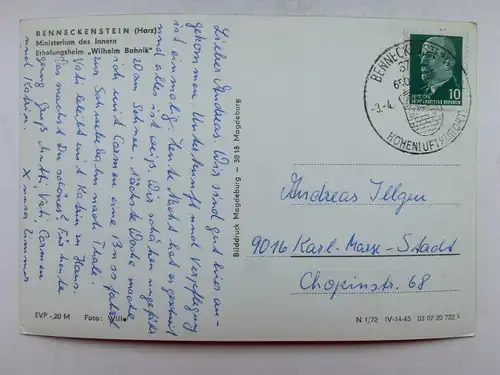 BENNECKENSTEIN (Harz)
Ministerium des Innern
Erholungsheim „Wilhelm Bahnik"
Lieber Andreas. Wir sind gut hier an-
gekommen. Unterkunft und Verpflegung
ist einmalig. Heute Nacht hat es geschneit
und alles ist weiß. Wir schätzen ungefähr
20 cm Schnee. Nächste Woche mache
ich mit Carmen eine Busfahrt
zur Schwebebahn nach Thale.
Vati bleibt mit Katrin zu Haus.
Was machst Du schönes? Für heute
genug Gruß Mutti, Vati, Carmen
und Katrin. X unser Zimmer
EVP -,20 M Foto:
Bilddruck Magdeburg — 3018 Magdeburg
BENNECKENSTEIN
-3.-4.
HÖHENLUFTKURORT
10
DEUTSCHE DEMOKRATISCHE REPUBLIK
Andreas Illgen
9016 Karl-Marx-Stadt
Chopinstr. 68
N 1/72 IV-14-45 03 07 20 722